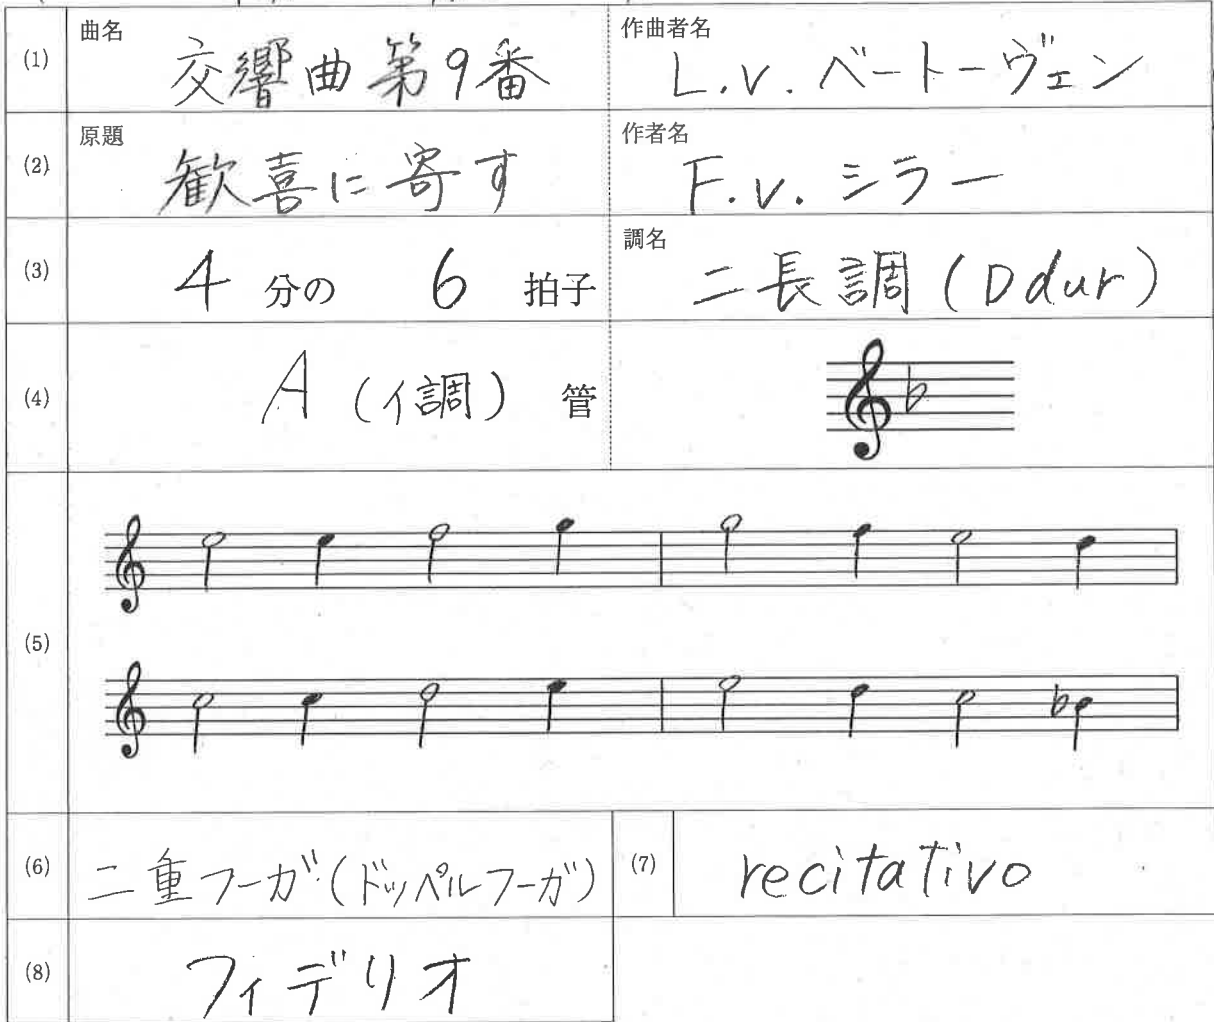 (1) 曲名 交響曲第9番 作曲者名 L.v.ベートーヴェン
(2) 原題 歓喜に寄す 作者名 F.v.シラー
(3) 4 分の 6 拍子 調名 ニ長調(Ddur)
(4) A(イ調) 管
(5)
(6) 二重フーガ(ドッペルフーガ) (7) recitativo
(8) フィデリオ